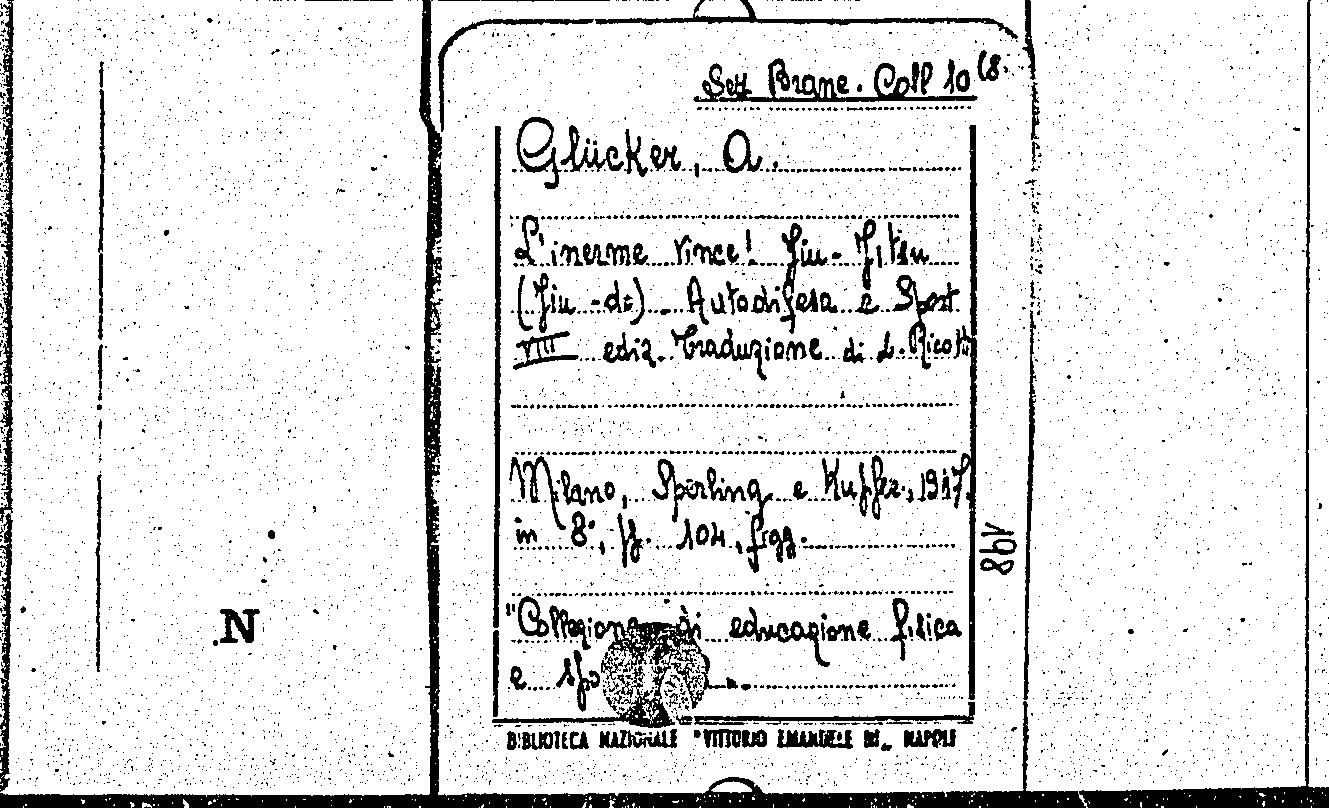 Sez Branc. Coll 10 (8.
Glücker, A.
L'inerme vince! Jiu-Jitsu
(Jiu-do). Autodifesa e Sport
VIII ediz. Traduzione di L. Ricotti
Milano, Sperling e Kupfer, 1947.
in 8°, ff. 104, figg.
"Collezione di educazione fisica
e
198
N
BIBLIOTECA NAZIONALE "VITTORIO EMANUELE III„ NAPOLI